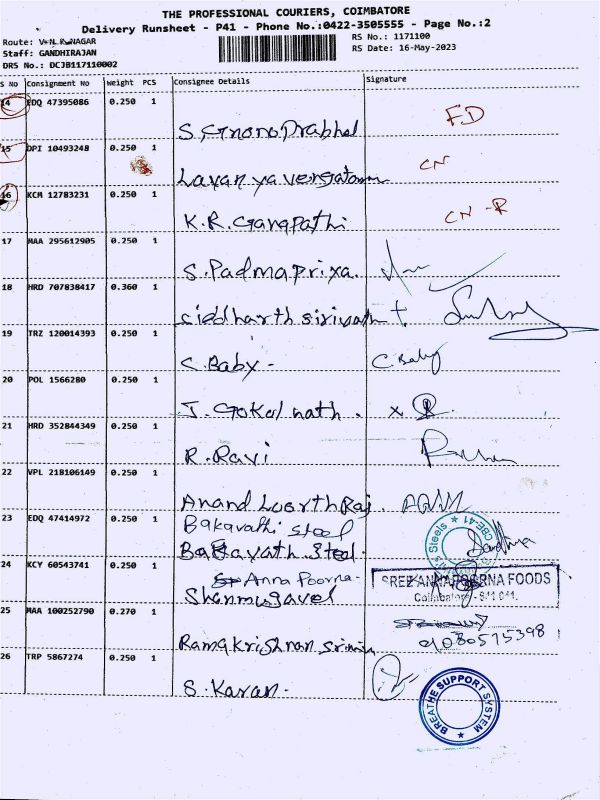 THE PROFESSIONAL COURIERS, COIMBATORE
Delivery Runsheet - P41 - Phone No.:0422-3505555 - Page No.:2
Route: V.N.R.NAGAR
Staff: GANDHIRAJAN
DRS No.: DCJB117110002
RS No.: 1171100
RS Date: 16-May-2023
S No Consignment No Weight PCS Consignee Details Signature
14 EDQ 47395086 0.250 1
S. Gnana Prabhal FD
15 DPI 10493248 0.250 1
Lavanya vengatan CN
16 KCM 12783231 0.250 1
K.R. Ganapathi CN -R
17 MAA 295612905 0.250 1
S. Padmapriya.
18 HRD 707838417 0.360 1
siddharth sirivath
19 TRZ 120014393 0.250 1
C. Baby - C. Baby
20 POL 1566280 0.250 1
J. Gokal nath . x
21 HRD 352844349 0.250 1
R. Ravi
22 VPL 218106149 0.250 1
Anand Raj.
23 EDQ 47414972 0.250 1
Bakavathi steel
Steel. Steels CBE-41
24 KCY 60543741 0.250 1
Anna Poorna-
Shanmugavel
SREE ANNAPOORNA FOODS
Coimbatore - 641 041.
25 MAA 100252790 0.270 1
Ramakrishnan 9080575398
26 TRP 5867274 0.250 1
S. Karan.
BREATHE SUPPORT SYSTEM